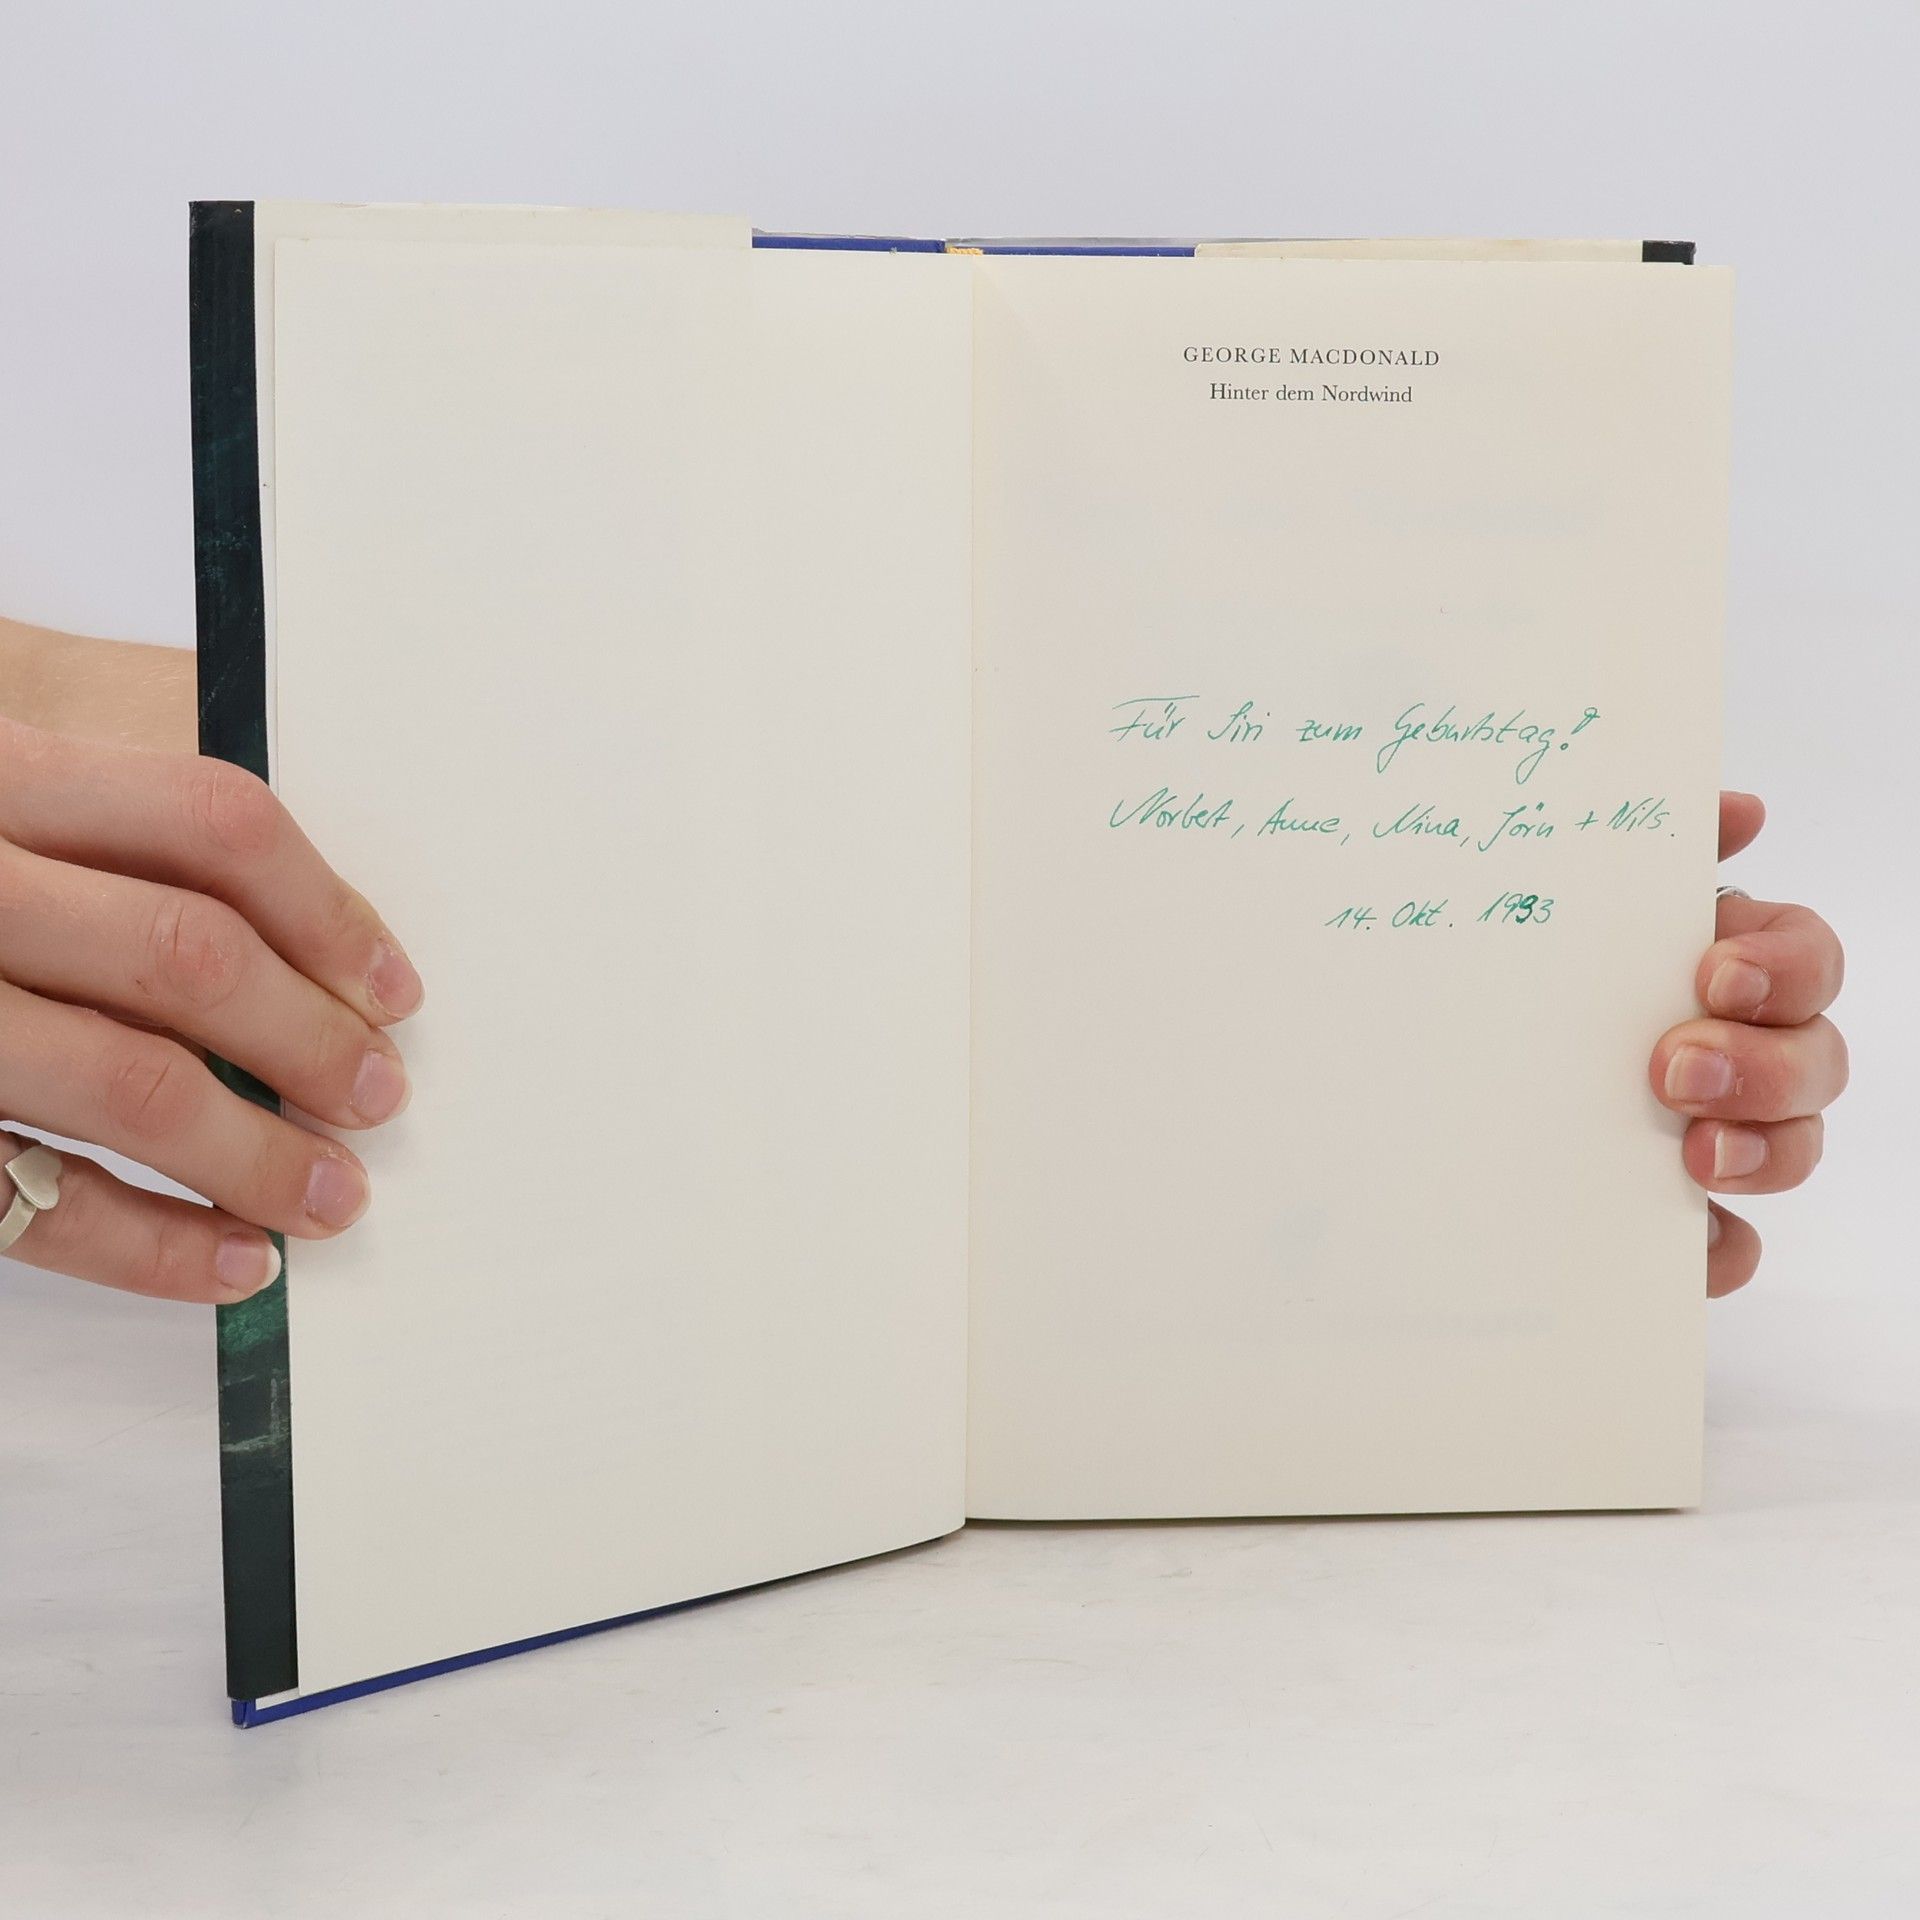 GEORGE MACDONALD
Hinter dem Nordwind
Für Siri zum Geburtstag!
Norbert, Anne, Nina, Jörn + Nils.
14. Okt. 1993